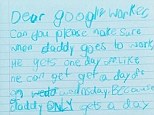 Dear google worker,
Can you please make sure
when daddy goes to work,
He gets one day off. Like
he can get get a day off
on wedo wednesday. Because
daddy ONLY gets a day